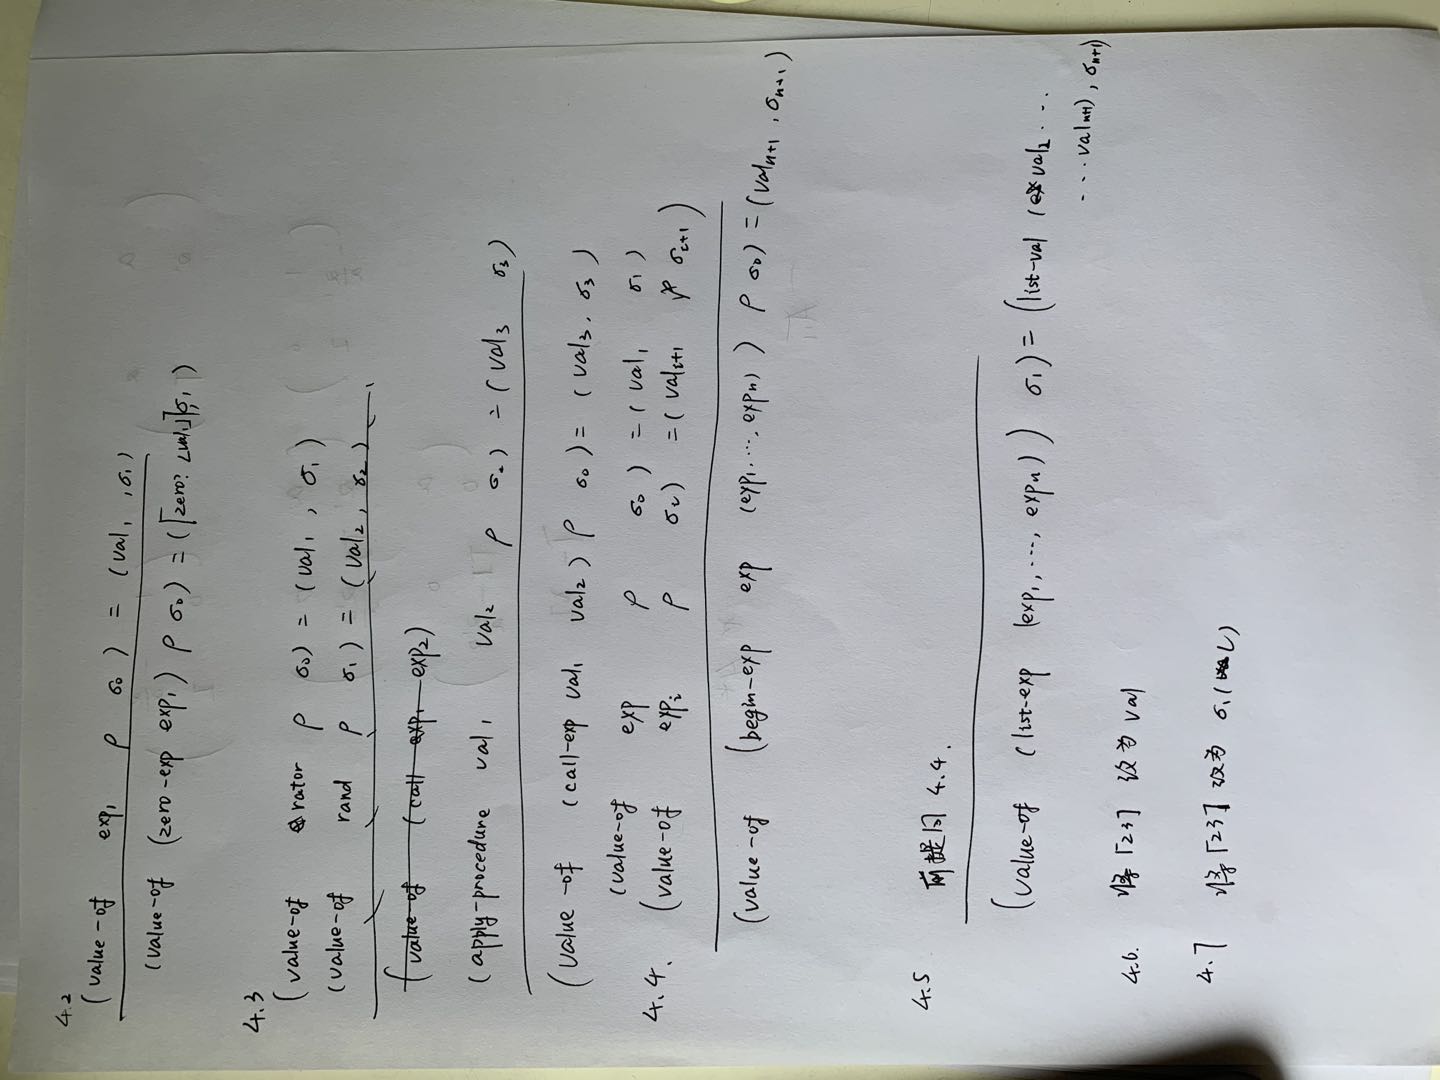 4.2
(value-of exp₁ ρ σ₀) = (val₁, σ₁)
(value-of (zero-exp exp₁) ρ σ₀) = (⌈zero? ⌊val₁⌋⌉, σ₁)
4.3
(value-of rator ρ σ₀) = (val₁, σ₁)
(value-of rand ρ σ₁) = (val₂, σ₂)
(value-of (call exp₁ exp₂)
(apply-procedure val₁ val₂ ρ σ₂) = (val₃ σ₃)
(value-of (call-exp val₁ val₂) ρ σ₀) = (val₃, σ₃)
(value-of exp ρ σ₀) = (val₁ σ₁)
4.4. (value-of expᵢ ρ σᵢ) = (valᵢ₊₁ σᵢ₊₁)
(value-of (begin-exp exp (exp₁, ..., expₙ)) ρ σ₀) = (valₙ₊₁, σₙ₊₁)
4.5 前提同 4.4.
(value-of (list-exp (exp₁, ..., expₙ)) σ₁) = (list-val (val₂ ...
... valₙ₊₁), σₙ₊₁)
4.6. 将⌈23⌉ 改为 val
4.7 将⌈23⌉ 改为 σ₁(l)